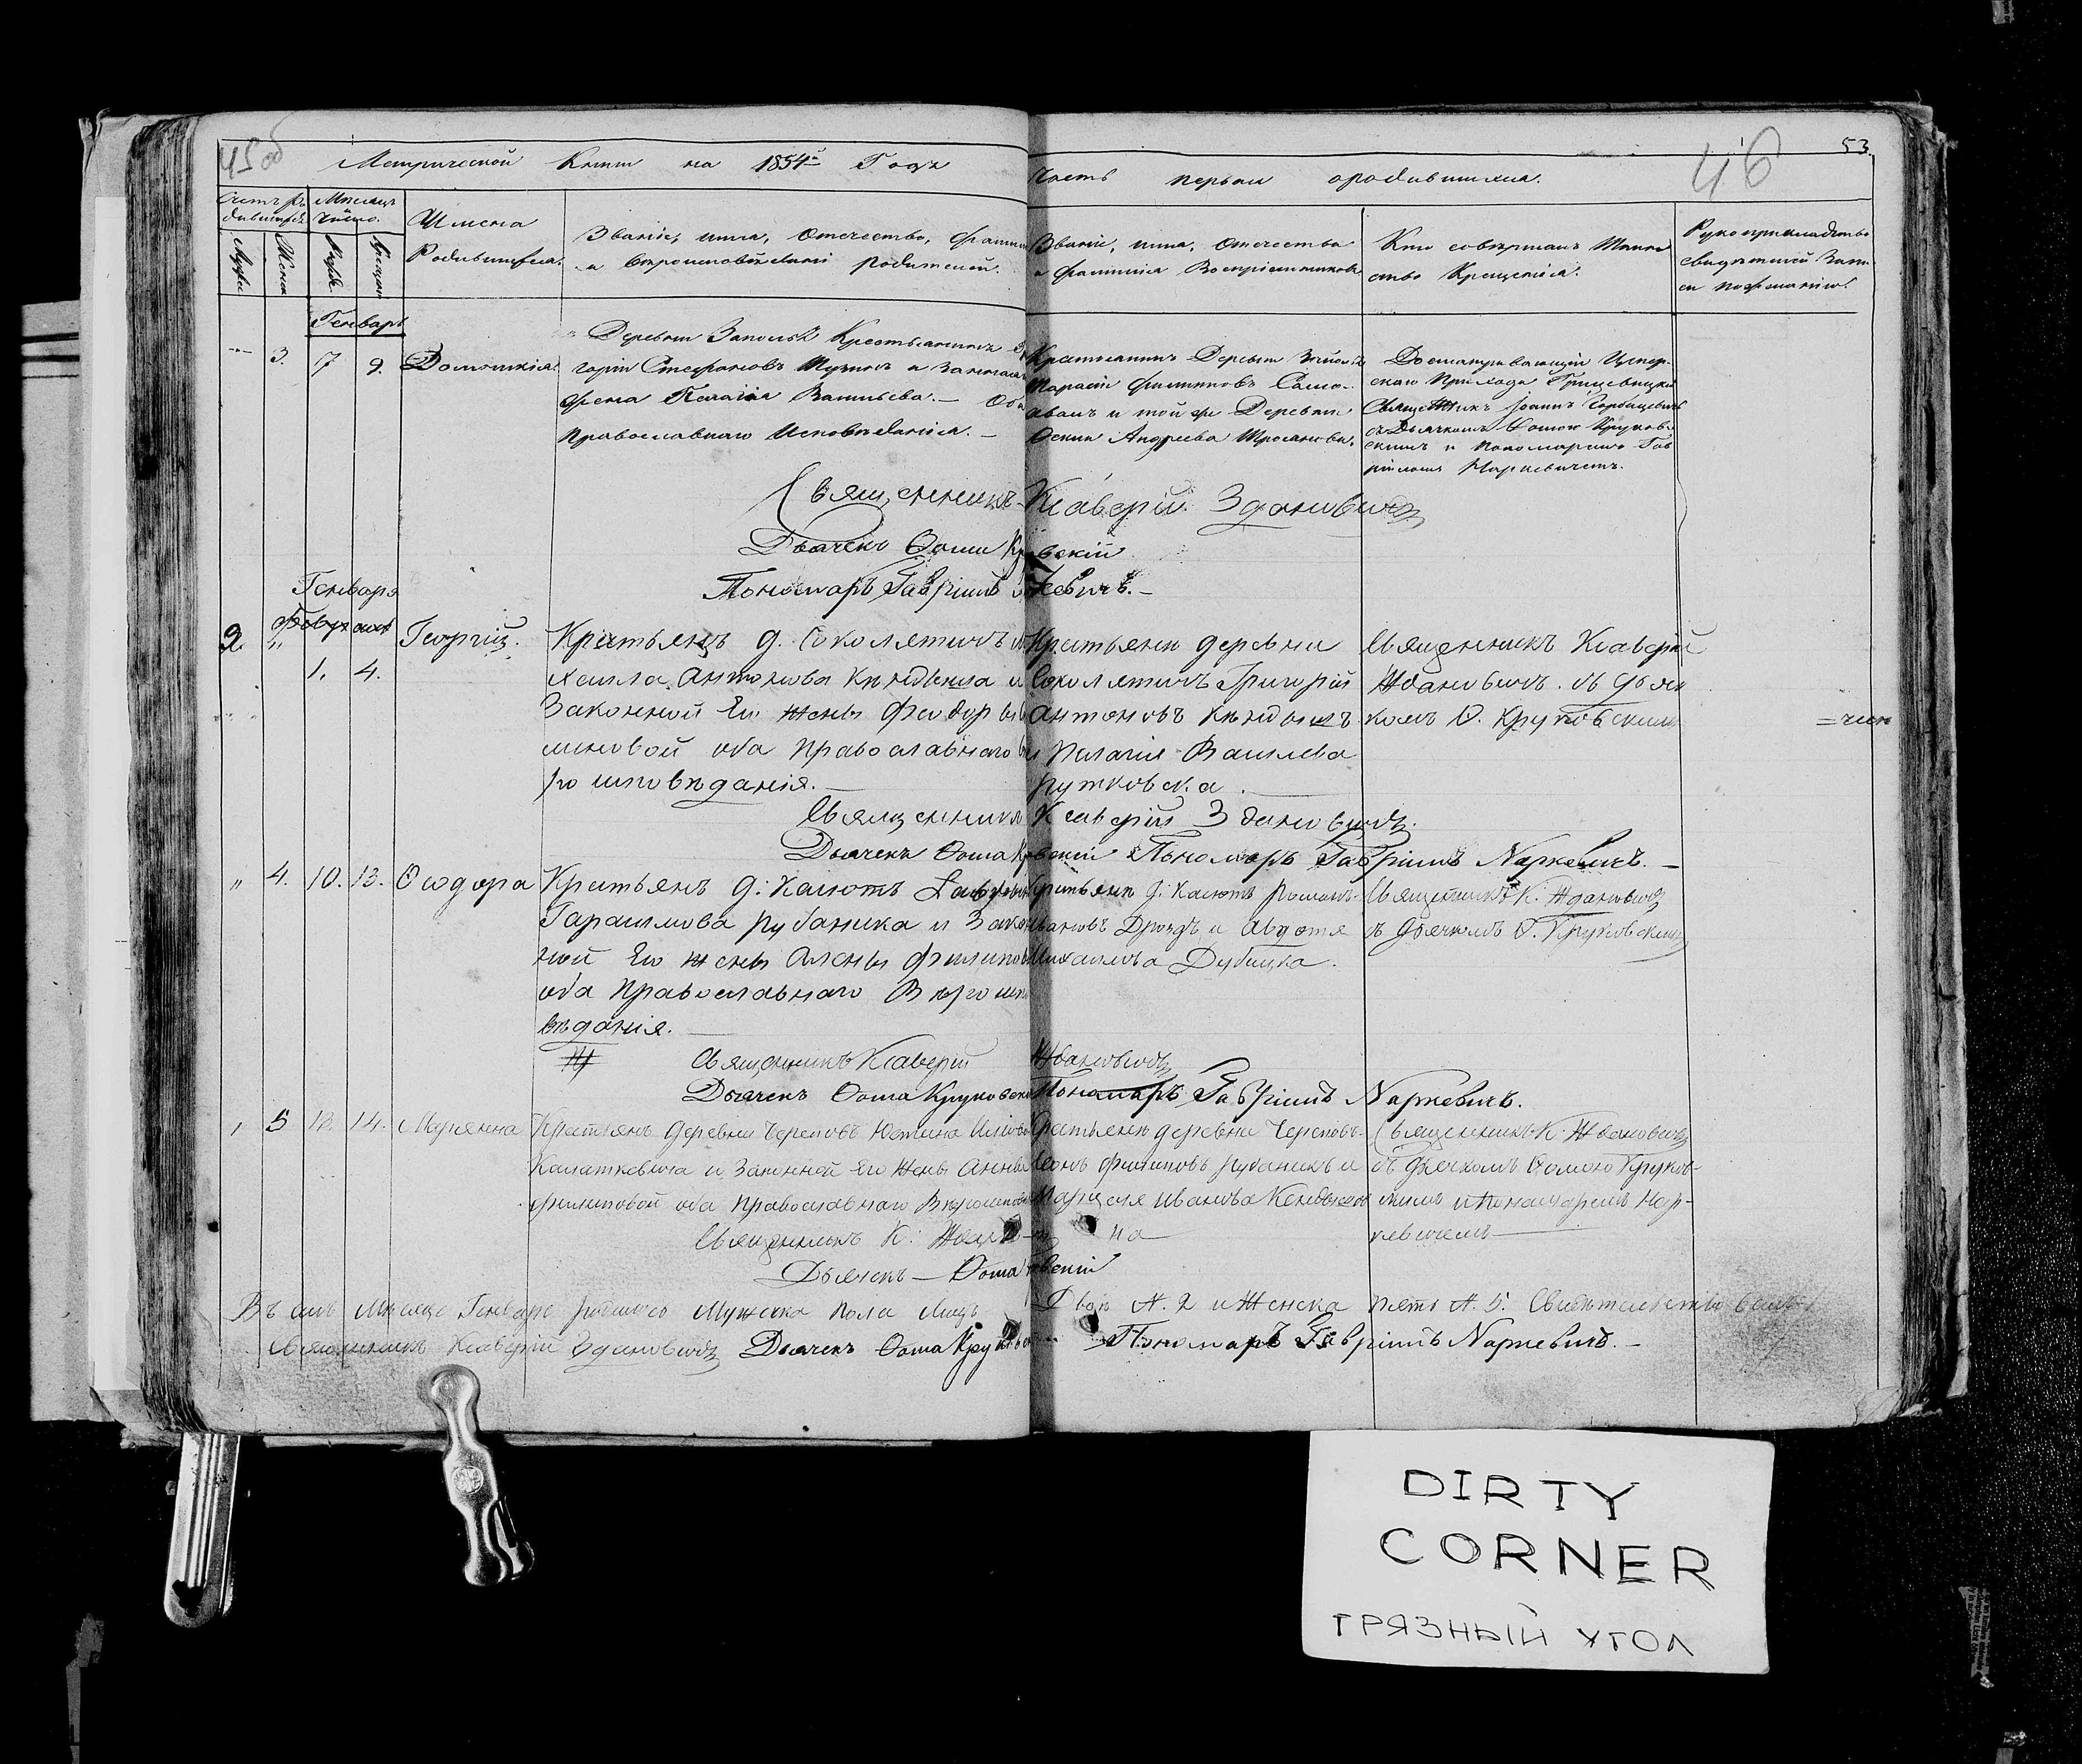 45 об
Метрической Книги на 1854й Годъ
Часть первая о родившихся.
46
53.
Счетъ ро-
дившихся
Мужск.
Женск.
Мѣсяцъ
Число.
Рожд.
Крещен.
Имена
Родившихся.
Званіе, имя, Отечество, фамилія
и Вѣроисповѣданіе родителей.
Званіе, имя, отечество
и фамилія Воспріемниковъ
Кто совершалъ Таин-
ство Крещенія.
Рукоприкладство
свидѣтелей Запи-
си по желанію.
Генварь
3. 7 9. Домникія.
Деревни Заполья Крестьянинъ
горій Стефановъ и Законная
жена Пелагія Васильева. — Оба
Православнаго Исповѣданія. —
Крестьянинъ Деревни Заполья
Тарасій Филиповъ Само-
и той же Деревни
Андреева
скаго Прихода Грицевицкій
Священникъ Іоаннъ Горбацевичъ
съ Дьячкомъ Ѳомою Круков-
скимъ и Пономаремъ Гав-
ріиломъ Наркевичемъ.
Священникъ Ксаверій Здановичъ
Дьячекъ Ѳома Круковскій
Пономарь Гавріилъ Наркевичъ. —
Генваря
Февраль
2. " 1. 4. Георгій.
Крестьянъ д. Соколятичъ Ми-
хаила Антонова Кендыша и
Законной Его жены Феодоры
миновой оба православнаго Вѣ-
роисповѣданія. —
Крестьяне деревни
Соколятичъ Григорій
Антоновъ Кендышъ
и Пелагія Василева
рутковска.
Священникъ Ксаверій
Ждановичъ. съ Дьяч
комъ Ѳ. Круковскимъ
= чик
Священникъ Ксаверій Здановичъ.
Дьячекъ Ѳома Круковскій Пономарь Гавріилъ Наркевичъ. —
" 4. 10. 13. Ѳеодора
Крестьянъ д: Каютъ
Гарасимова рубаника и Закон-
ной Его жены Алены Филипов
оба Православнаго Вѣроиспо-
вѣданія. —
Крестьяне д: Каютъ Романъ
Ивановъ Дроздъ и Авдотя
Михаилова Дубицка.
Священникъ К: Ждановичъ
съ Дьячкомъ Ѳ. Круковскимъ
Ж Священникъ Ксаверій Ждановичъ
Дьячекъ Ѳома Круковскій Пономарь Гавріилъ Наркевичъ.
" 5 12. 14. Марянна
Крестьянъ деревни Череповъ Юстина
Калаткевича и Законной Его Жены Анны
филиповой оба православнаго Вѣроисповѣ
Крестьяне деревни Череповъ
филиповъ рубаникъ и
Марцеля Иванова Кендышов
на
Священникъ К. Ждановичъ
съ Дьячкомъ Ѳомою Круков-
скимъ и Пономаремъ Нар-
кевичемъ —
Священникъ К:
Дьячекъ — Ѳома Круковскій
Въ семъ Мѣсяцѣ Генварѣ родилось Мужеска пола лицъ Два №. 2 и Женска пять №. 5.
Священникъ Ксаверій Здановичъ Дьячекъ Ѳома Круковскій Пономарь Гавріилъ Наркевичъ. —
DIRTY
CORNER
ГРЯЗНЫЙ УГОЛ